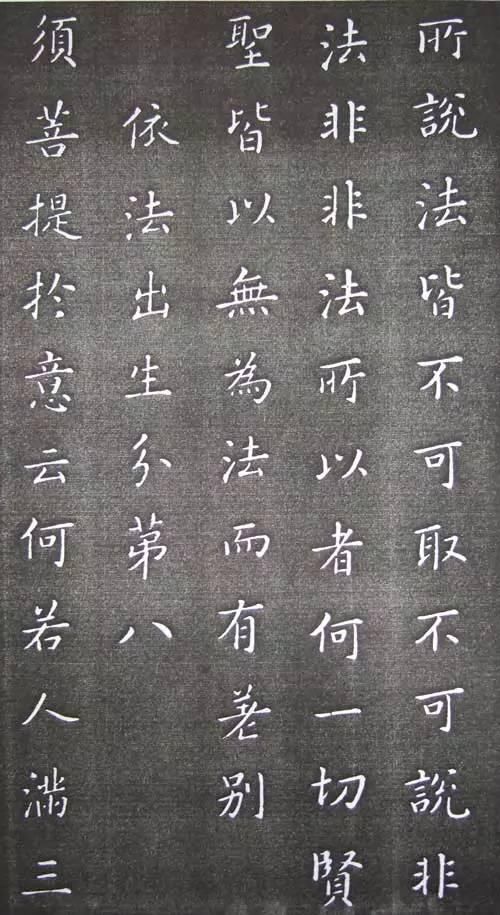 所說法皆不可取不可說非
法非非法所以者何一切賢
聖皆以無為法而有差別
依法出生分第八
須菩提於意云何若人滿三